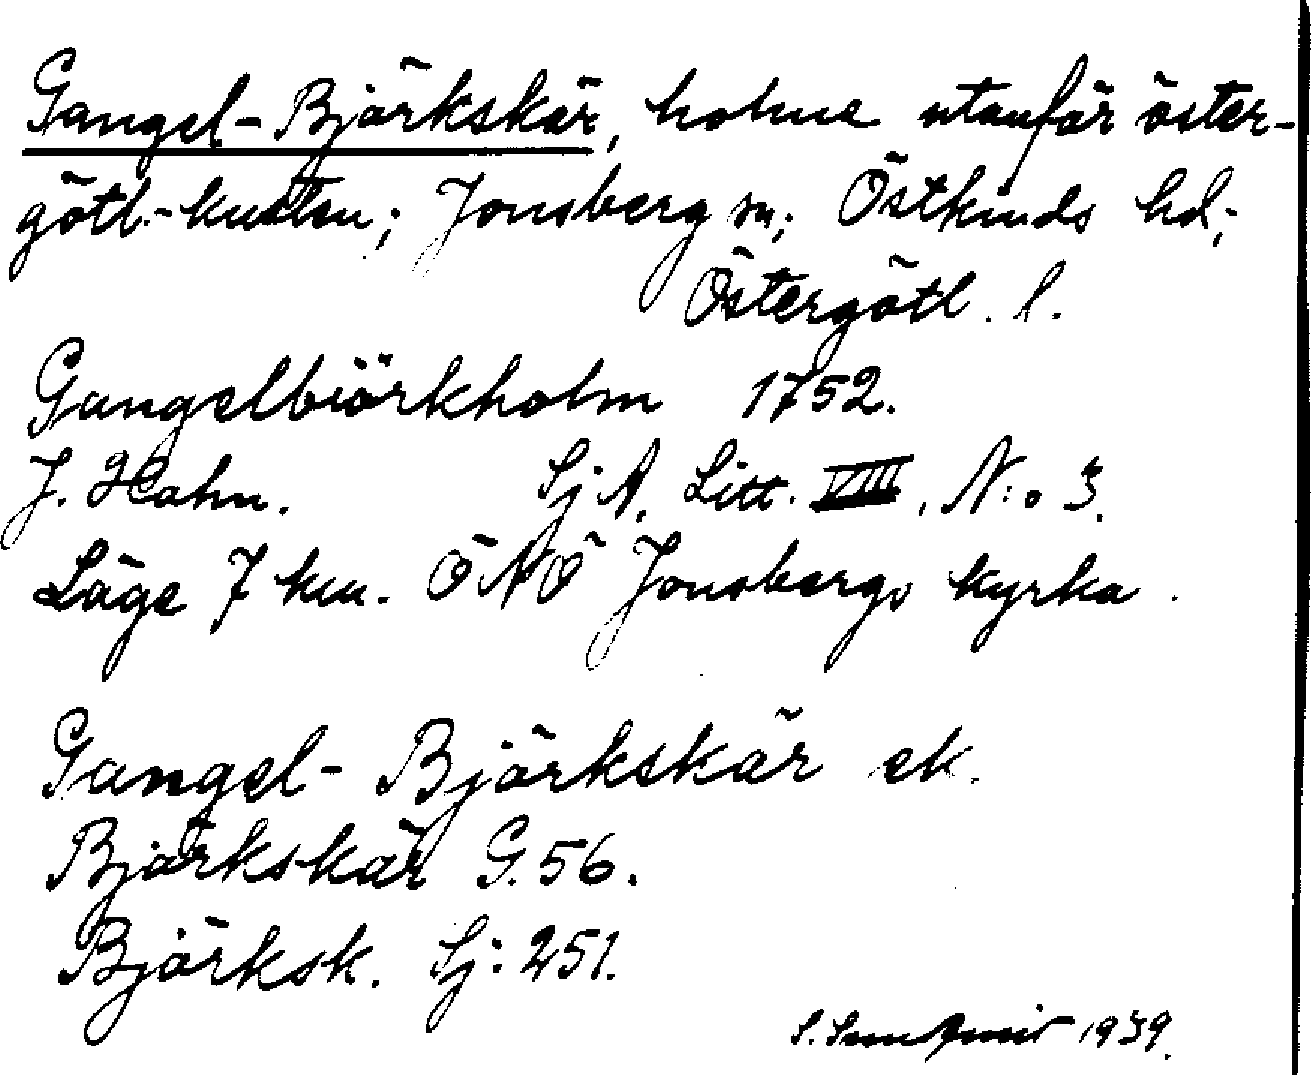 Gangel-Björkskär, holme utanför öster-
götl.-kusten; Jonsberg sn; Östkinds hd;
Östergötl. l.
Gangelbiörkholm 1752.
J. Hahn. Sj A. Litt. VIII, N:o 3.
Läge 7 km. ÖNÖ Jonsbergs kyrka.
Gangel-Björkskär ek.
Björkskär G. 56.
Björksk. Sj: 251.
S. 1939.